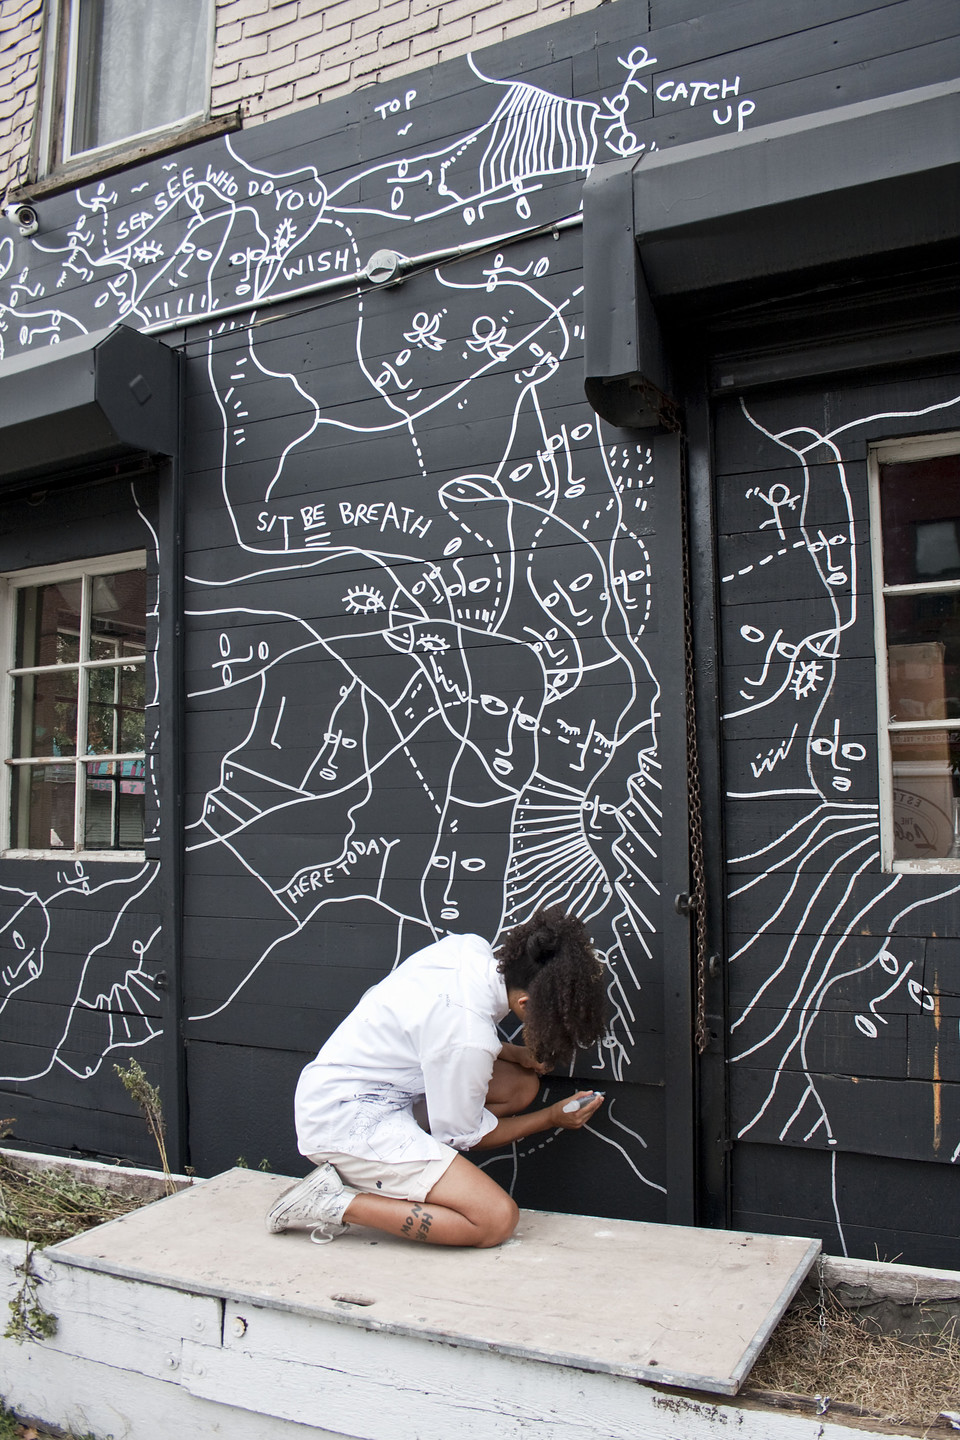 TOP
CATCH
UP
SEA SEE WHO DO YOU
WISH
SIT BE BREATH
HERE TODAY
HERE
NOW